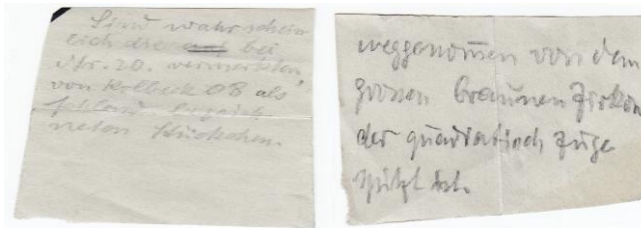 Sind wahrschein
lich die bei
Nr. 20. vermerkten,
von Kolbeck 08 als
fehlend bezeich
neten Stückchen.
weggenommen von dem
grossen braunen Zirkon
der quadratisch zuge
spitzt ist.